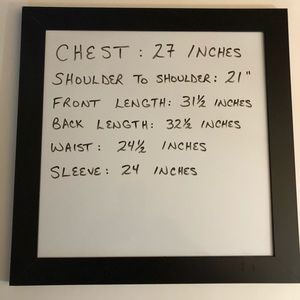 CHEST: 27 INCHES
SHOULDER TO SHOULDER: 21"
FRONT LENGTH: 31½ INCHES
BACK LENGTH: 32½ INCHES
WAIST: 24½ INCHES
SLEEVE: 24 INCHES